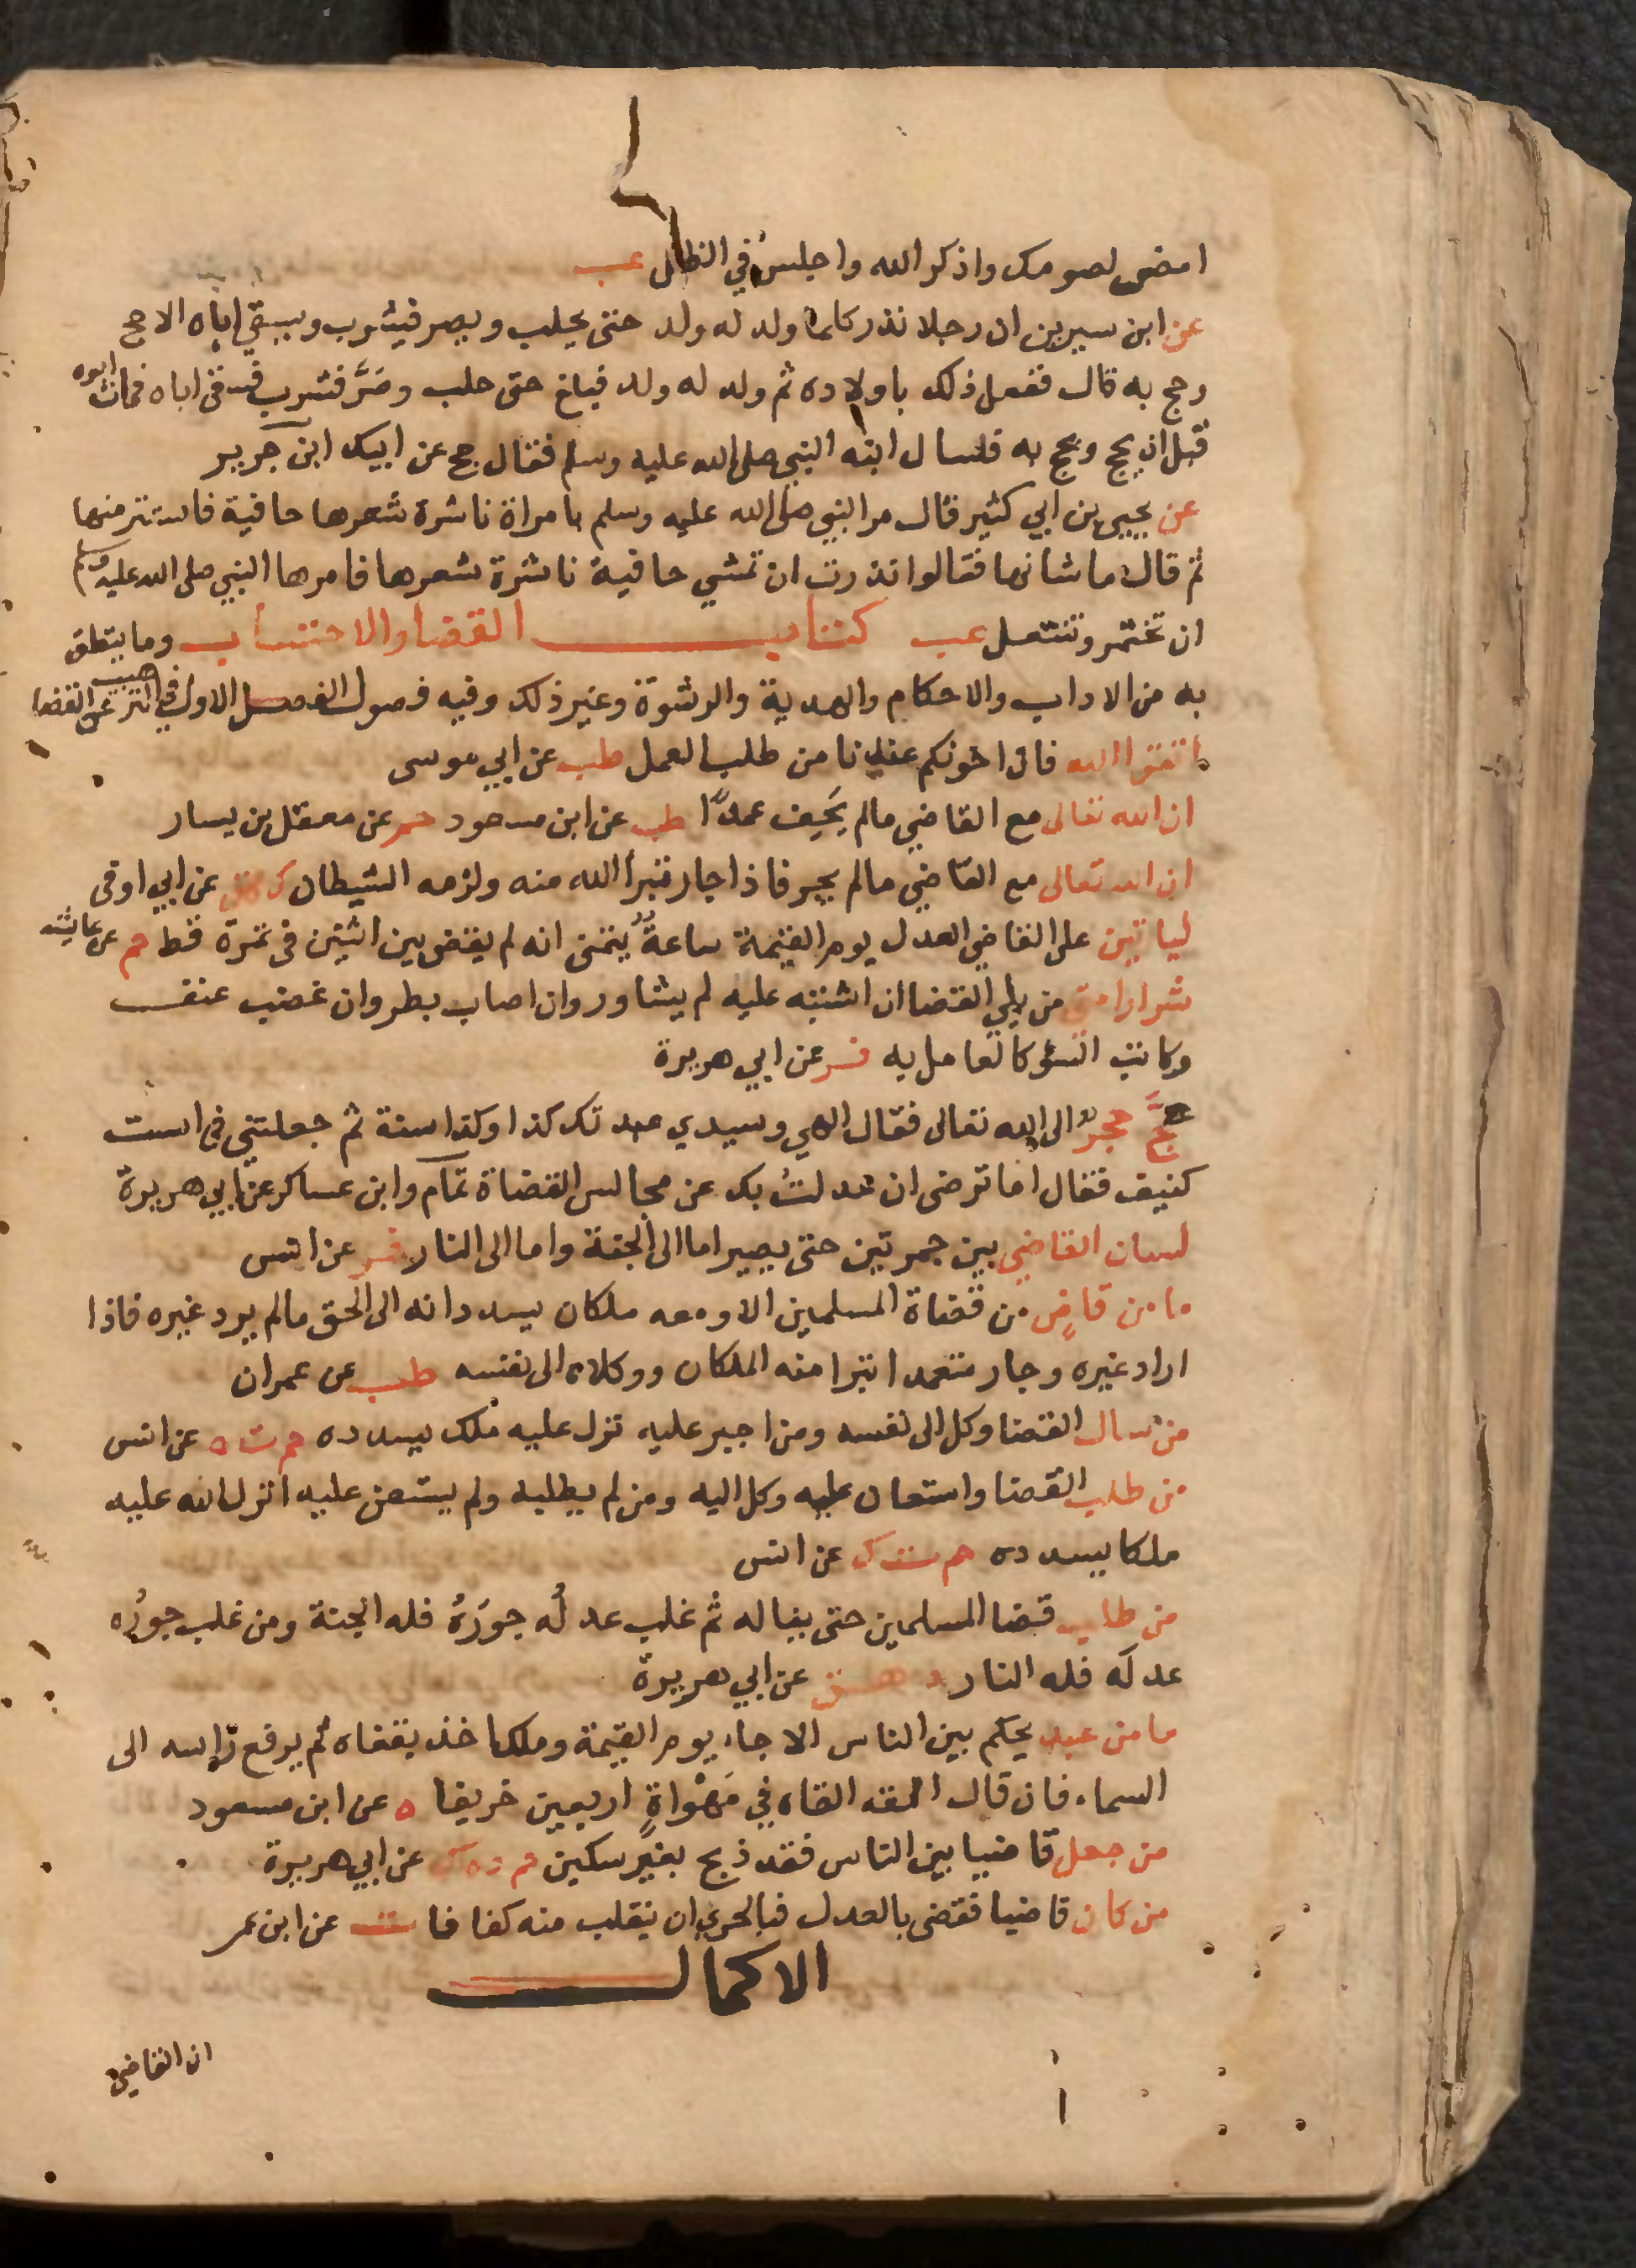 امض لصومك واذكر الله واجلس في الظل عب
عن ابن سيرين ان رجلا نذر كلما ولد له ولد حتى يحلب ويصر فيشرب ويسقي اباه الا حج
وحج به قال ففعل ذلك باولاده ثم ولد له ولد فبلغ حتى حلب وصَرَّ فشرب فسقى اباه فمات ابوه
قبل ان يحج ويحج به فسال ابنه النبي صلى الله عليه وسلم فقال حج عن ابيك ابن جرير
عن يحيى بن ابي كثير قال مر النبي صلى الله عليه وسلم بامراة ناشرة شعرها حافية فاستتر منها
ثم قال ما شانها فقالوا نذرت ان تمشي حافية ناشرة شعرها فامرها النبي صلى الله عليه وسلم
ان تختمر وتنتعل عب كتاب القضا والاحتساب وما يتعلق
به من الاداب والاحكام والهدية والرشوة وغير ذلك وفيه فصول الفصل الاول في الترهيب عن القضا
اتقوا الله فان اخونكم عندنا من طلب العمل طب عن ابي موسى
ان الله تعالى مع القاضي مالم يَحِيف عمدًا طب عن ابن مسعود حم عن معقل بن يسار
ان الله تعالى مع القاضي مالم يجر فاذا جار تبرأ الله منه ولزمه الشيطان ك هق عن ابي اوفى
لياتين على القاضي العدل يوم القيمة ساعةٌ يتمنى انه لم يقض بين اثنين في تمرة قط حم عن عايشه
شرار امتي من يلي القضا ان اشتبه عليه لم يشاور وان اصاب بطر وان غضب عنف
وكاتب السؤ كالعامل به فر عن ابي هريرة
عجَّ حجرٌ الى الله تعالى فقال الهي وسيدي عبدتك كذا وكذا سنة ثم جعلتني في است
كنيف فقال اما ترضى ان عدلتُ بك عن مجالس القضاة تمام وابن عساكر عن ابي هريرة
لسان القاضي بين جمرتين حتى يصير اما الى الجنة واما الى النار فر عن انس
ما من قاضٍ من قضاة المسلمين الا ومعه ملكان يسددانه الى الحق مالم يرد غيره فاذا
اراد غيره وجار متعمدا تبرا منه الملكان ووكلاه الى نفسه طب عن عمران
من سال القضا وكل الى نفسه ومن اجبر عليه نزل عليه ملك يسدده حم ت ه عن انس
من طلب القضا واستعان عليه وكل اليه ومن لم يطلبه ولم يستعن عليه انزل الله عليه
ملكا يسدده حم ت ك عن انس
من طلب قضا المسلمين حتى يناله ثم غلب عدلُه جورَهُ فله الجنة ومن غلب جورُه
عدلَه فله النار د هق عن ابي هريرة
ما من عبد يحكم بين الناس الا جاء يوم القيمة وملك اخذ بقفاه ثم يرفع راسه الى
السماء فان قال القه القاه في مَهْواةٍ اربعين خريفا ه عن ابن مسعود
من جعل قاضيا بين الناس فقد ذبح بغير سكين حم د ه ك عن ابي هريرة
من كان قاضيا فقضى بالعدل فبالحري ان ينقلب منه كفافا ت عن ابن عمر
الاكمال
ان القاضي